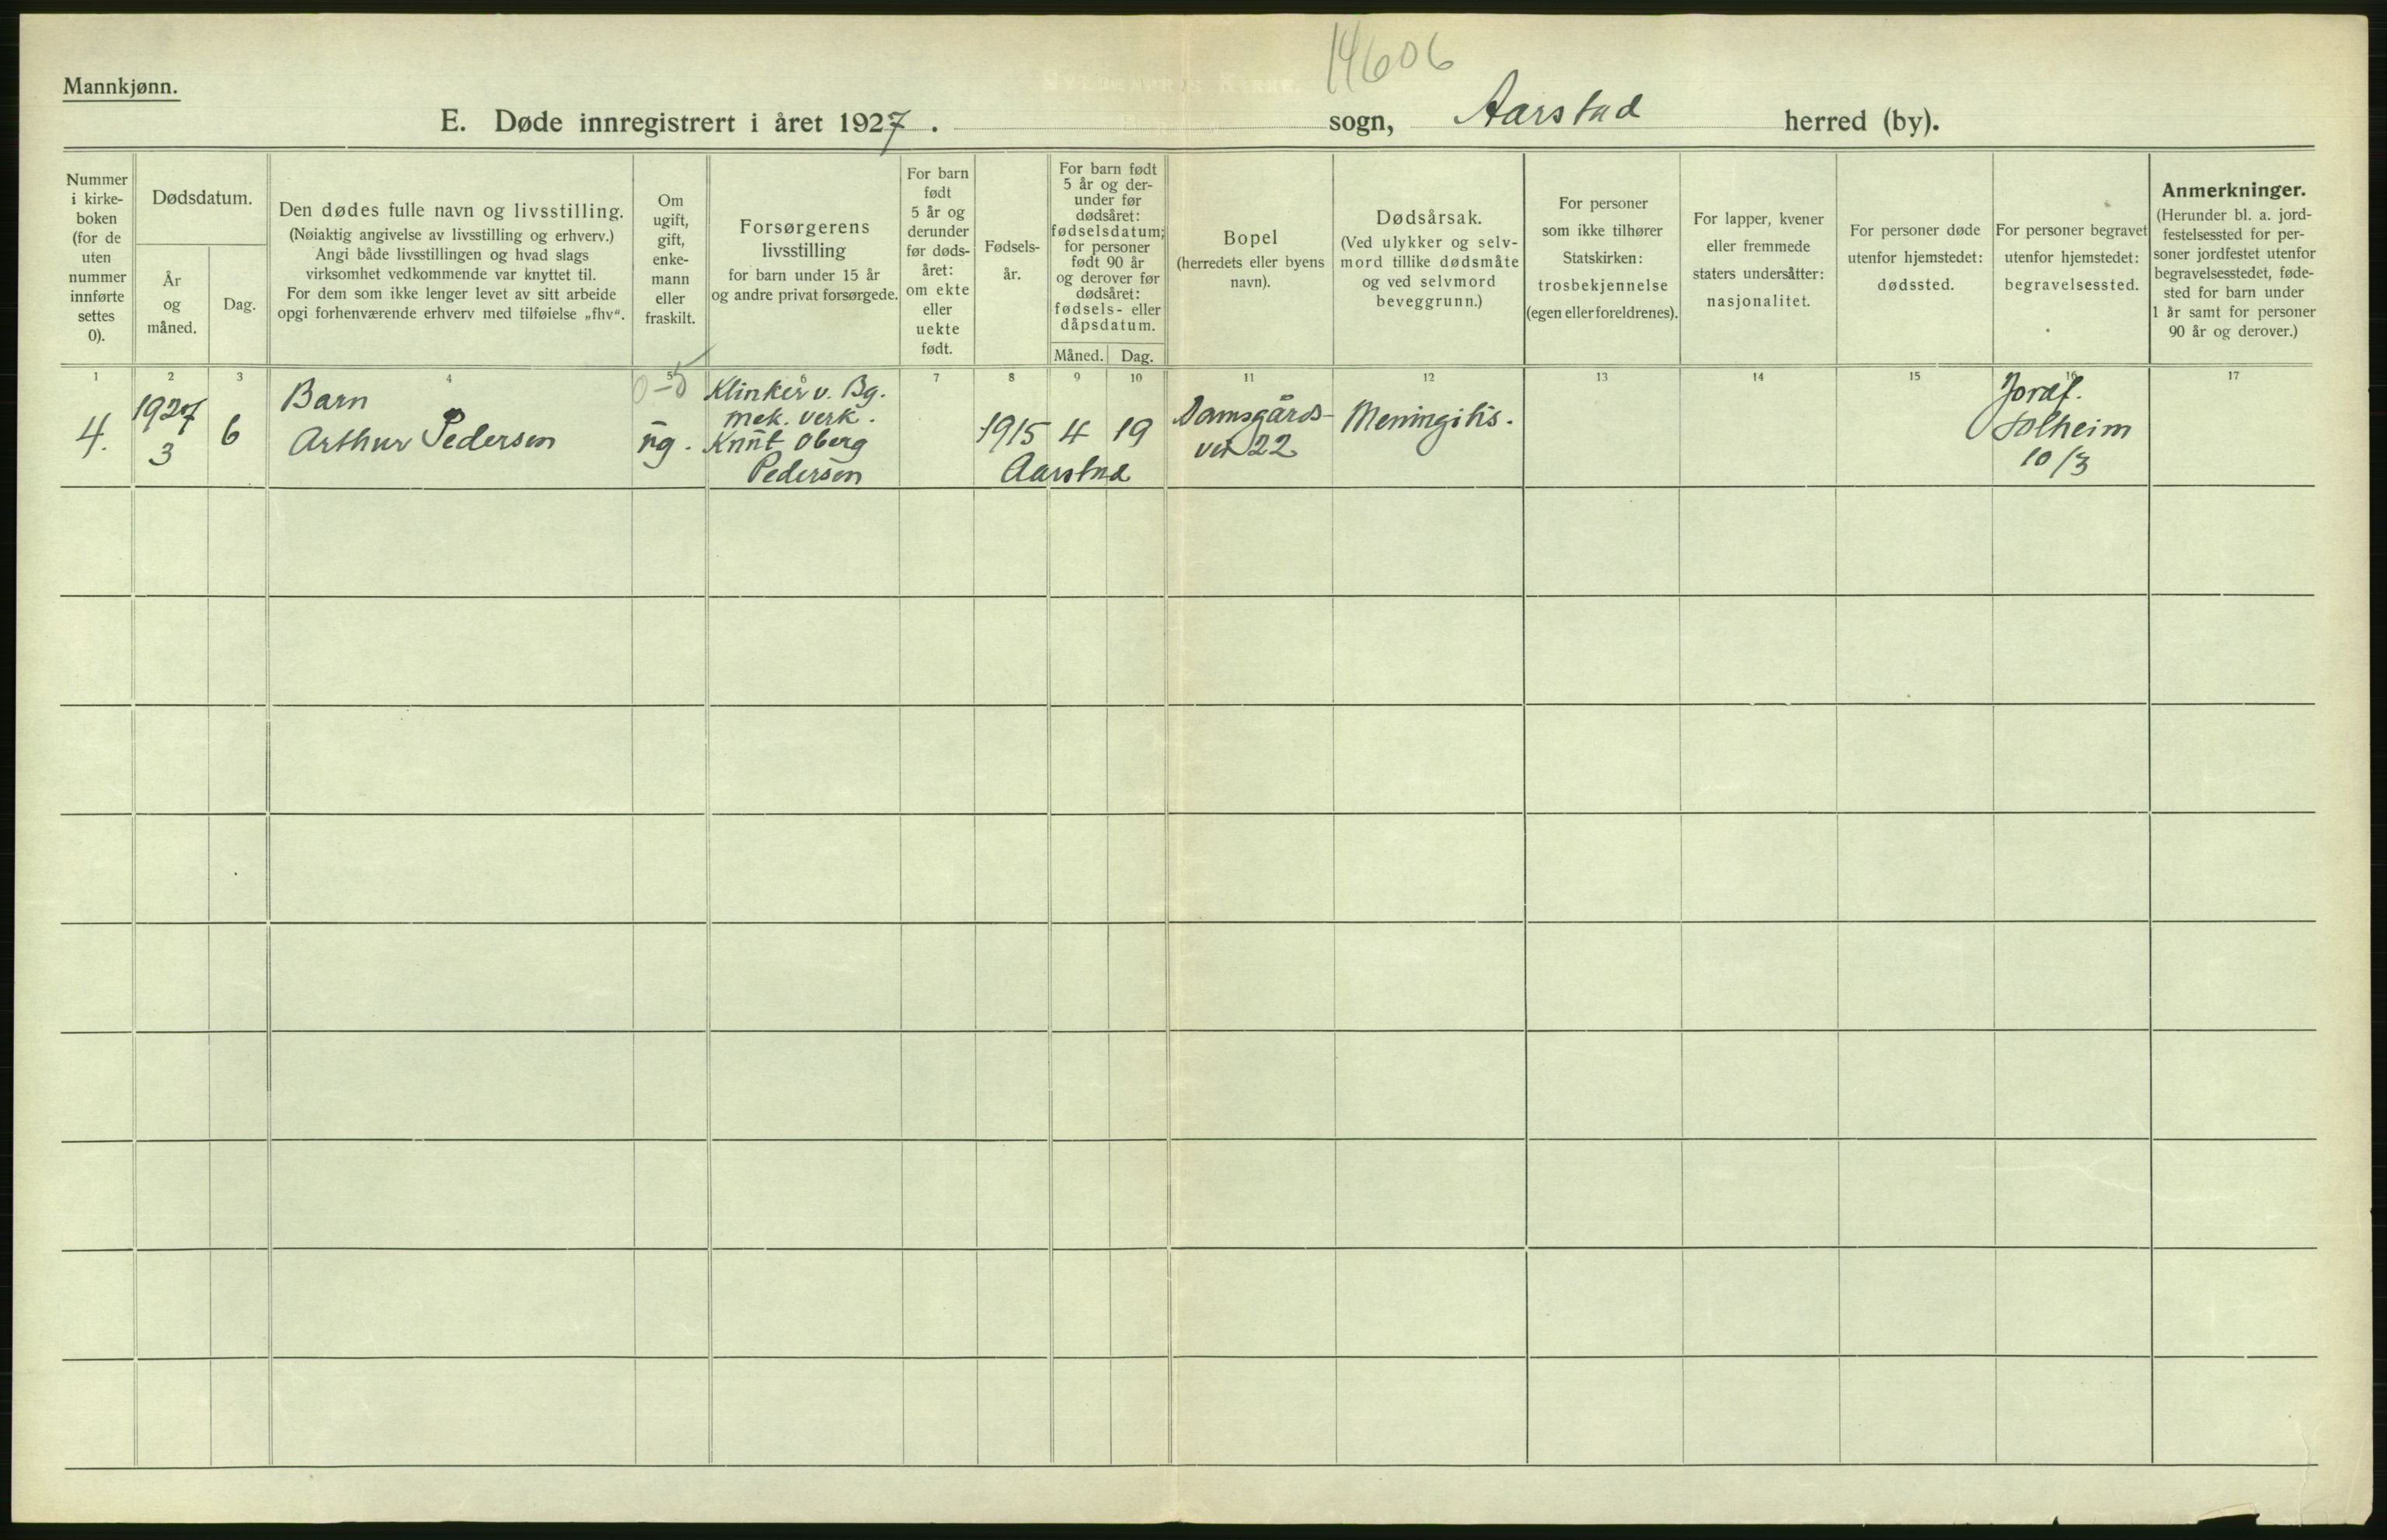 14606
Mannkjønn.
E. Døde innregistrert i året 1927. sogn, Aarstad herred (by).
Nummer i kirke-boken (for de uten nummer innførte settes 0).
Dødsdatum.
År og måned.
Dag.
Den dødes fulle navn og livsstilling.
(Nøiaktig angivelse av livsstilling og erhverv.)
Angi både livsstillingen og hvad slags
virksomhet vedkommende var knyttet til.
For dem som ikke lenger levet av sitt arbeide
opgi forhenværende erhverv med tilføielse „fhv“.
Om ugift, gift, enke-mann eller fraskilt.
Forsørgerens
livsstilling
for barn under 15 år
og andre privat forsørgede.
For barn født 5 år og derunder før døds-året: om ekte eller uekte født.
Fødsels-år.
For barn født
5 år og der-
under før
dødsåret:
fødselsdatum;
for personer
født 90 år
og derover før
dødsåret:
fødsels- eller
dåpsdatum.
Måned. Dag.
Bopel
(herredets eller byens
navn).
Dødsårsak.
(Ved ulykker og selv-
mord tillike dødsmåte
og ved selvmord
beveggrunn.)
For personer
som ikke tilhører
Statskirken:
trosbekjennelse
(egen eller foreldrenes).
For lapper, kvener
eller fremmede
staters undersåtter:
nasjonalitet.
For personer døde
utenfor hjemstedet:
dødssted.
For personer begravet
utenfor hjemstedet:
begravelsessted.
Anmerkninger.
(Herunder bl. a. jord-
festelsessted for per-
soner jordfestet utenfor
begravelsesstedet, føde-
sted for barn under
1 år samt for personer
90 år og derover.)
1 2 3 4 5 6 7 8 9 10 11 12 13 14 15 16 17
4.
1927
3
6
Barn
Arthur Pedersen
0-5
ug.
Klinker v. Bg.
mek. verk.
Knut Oberg
Pedersen
1915 4 19
Aarstad
Damsgårds-
vei 22
Meningitis.
Jordf.
Solheim
10/3